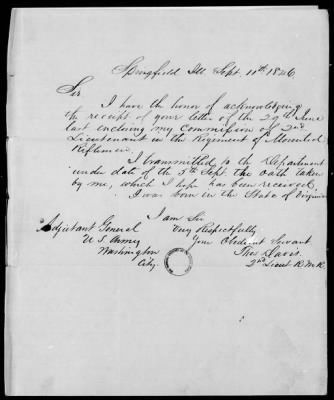 Springfield Ill. Sept. 11th 1846
Sir
I have the honor of acknowledging
the receipt of your letter of the 29th June
last enclosing my Commission of 2nd
Lieutenant in the Regiment of Mounted
Riflemen.
I transmitted to the Department
under date of the 5th Sept. the Oath taken
by me, which I hope has been received.
I was born in the State of Virginia
I am Sir
Very Respectfully
Your Obedient Servant.
Thos Davis.
2nd Lieut R. M. R.
Adjutant General
U. S. Army
Washington
City.